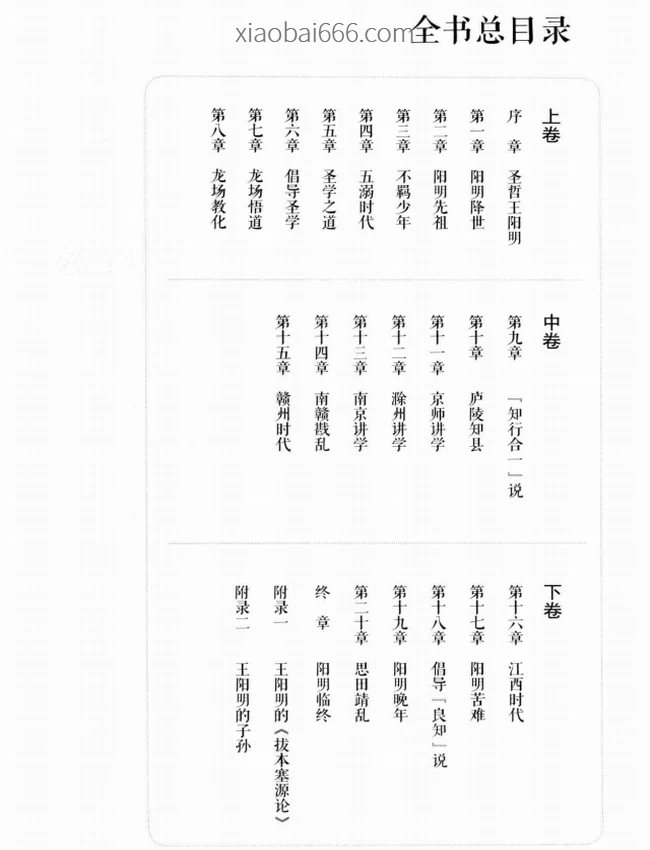 xiaobai666.com
全书总目录
上卷
序 章 圣哲王阳明
第一章 阳明降世
第二章 阳明先祖
第三章 不羁少年
第四章 五溺时代
第五章 圣学之道
第六章 倡导圣学
第七章 龙场悟道
第八章 龙场教化
中卷
第九章 「知行合一」说
第十章 庐陵知县
第十一章 京师讲学
第十二章 滁州讲学
第十三章 南京讲学
第十四章 南赣戡乱
第十五章 赣州时代
下卷
第十六章 江西时代
第十七章 阳明苦难
第十八章 倡导「良知」说
第十九章 阳明晚年
第二十章 思田靖乱
终 章 阳明临终
附录一 王阳明的《拔本塞源论》
附录二 王阳明的子孙